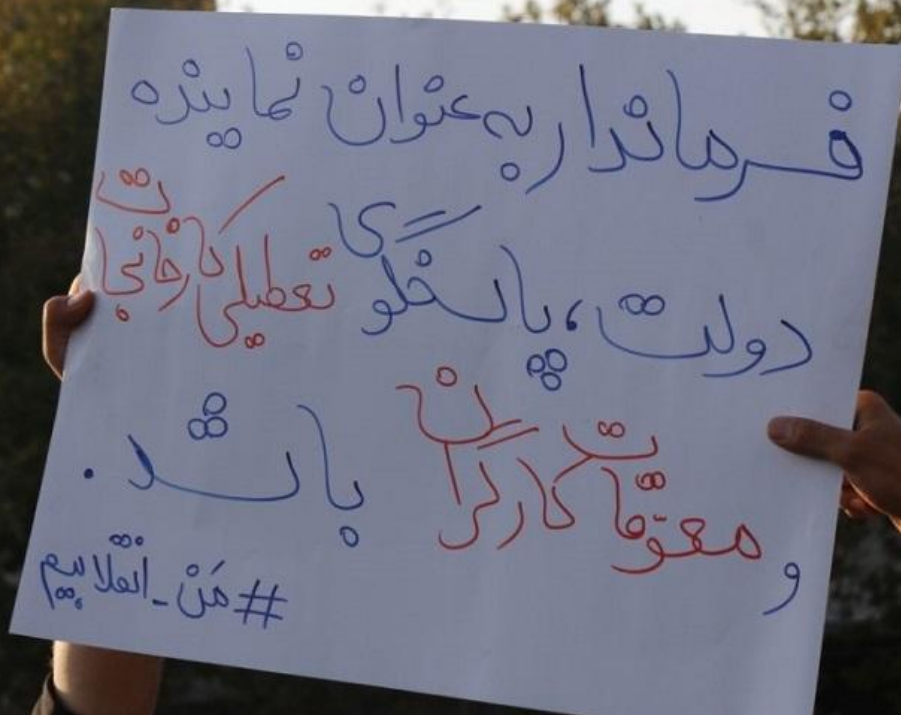 فرماندار به عنوان نماینده
دولت، پاسخگوی تعطیلی کارخانجات
و معوّقات کارگران باشد.
#مَن_انقلابیم